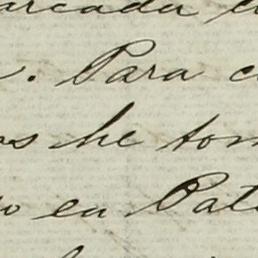 arcada
. Para
os he tom
en Pat